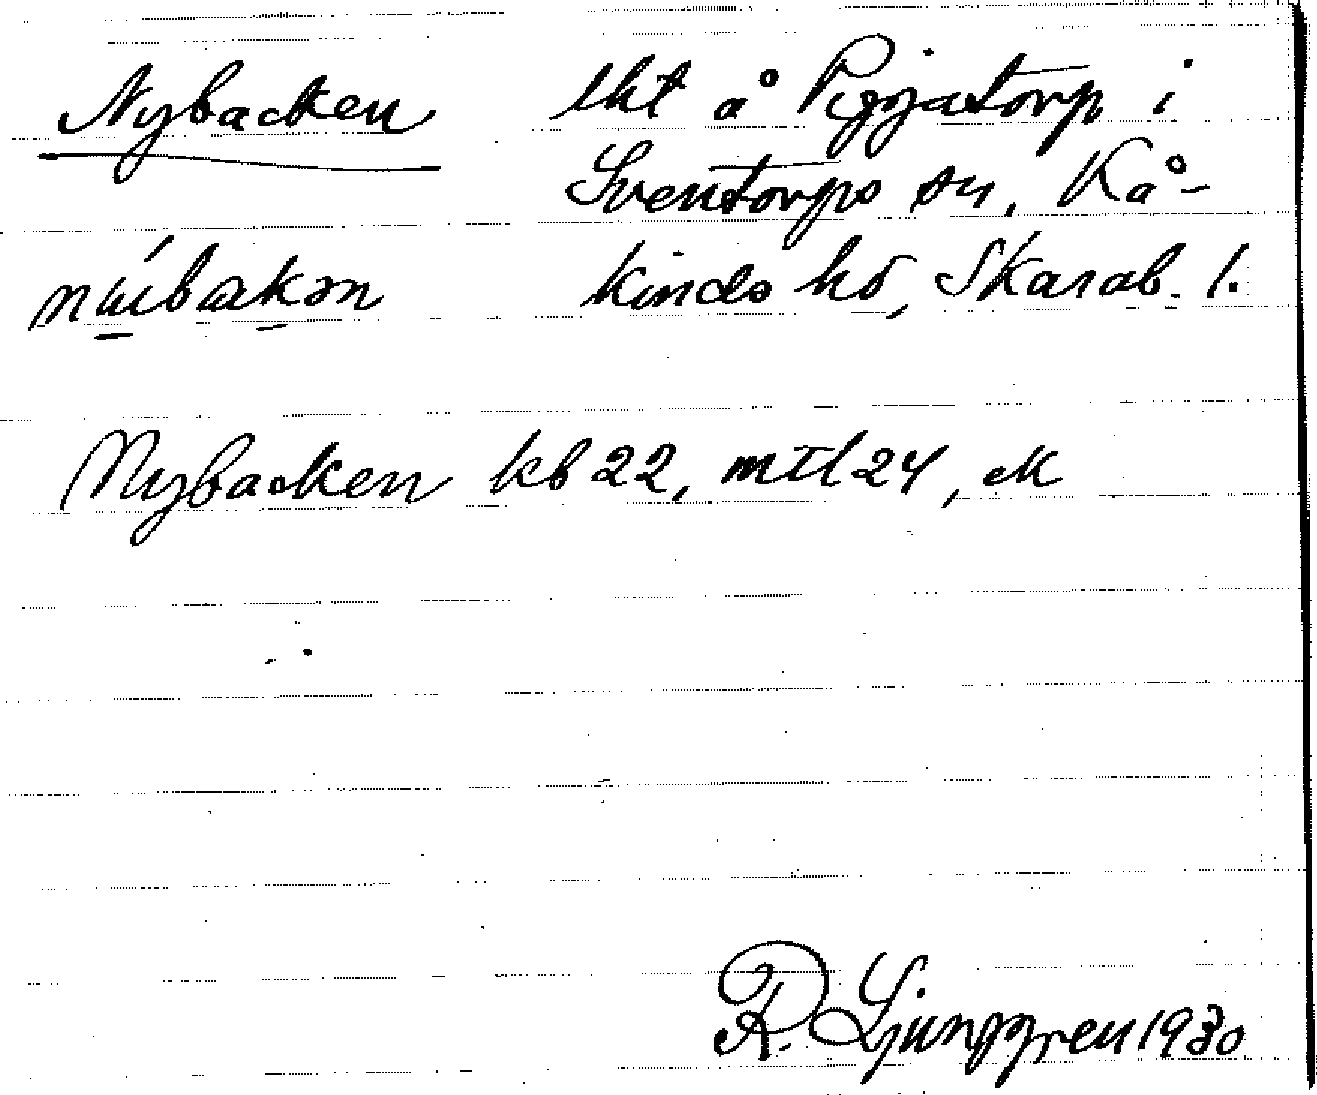 Nybacken lht å Piggatorp i
Sventorps sn, Kå-
kinds hd, Skarab. l.
Nybacken kb 22, mtl 24, ek
R. Ljunggren 1930